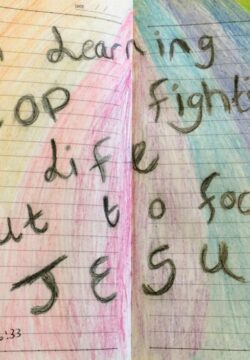 Learning
OP fight
Life
ut to foc
JESU
:33